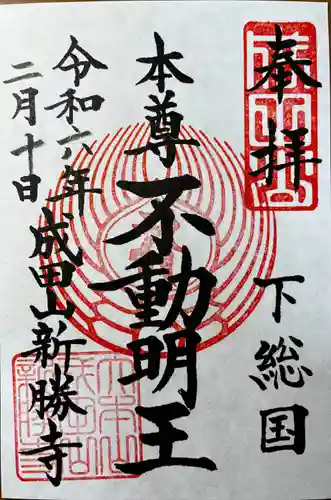 奉拝
下総国
本尊不動明王
令和六年
二月十日
成田山新勝寺